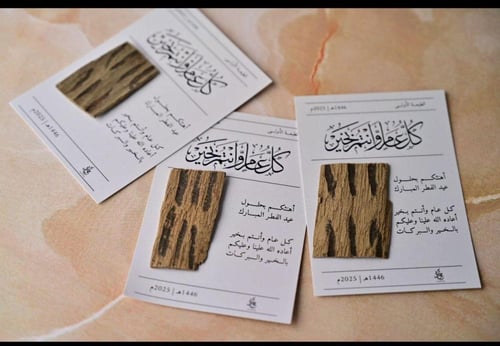 الطبعة الأولى
كل عام وأنتم بخير
1446هـ | 2025م
كل عام وأنتم بخير
أعاده الله علينا وعليكم
بالخير والبركات
الطبعة الأولى
كل عام وأنتم بخير
أهنئكم بحلول
عيد الفطر المبارك
كل عام وأنتم بخير
أعاده الله علينا وعليكم
بالخير والبركات
1446هـ | 2025م
الطبعة الأولى
كل عام وأنتم بخير
أهنئكم بحلول
عيد الفطر المبارك
كل عام وأنتم بخير
أعاده الله علينا وعليكم
بالخير والبركات
1446هـ | 2025م